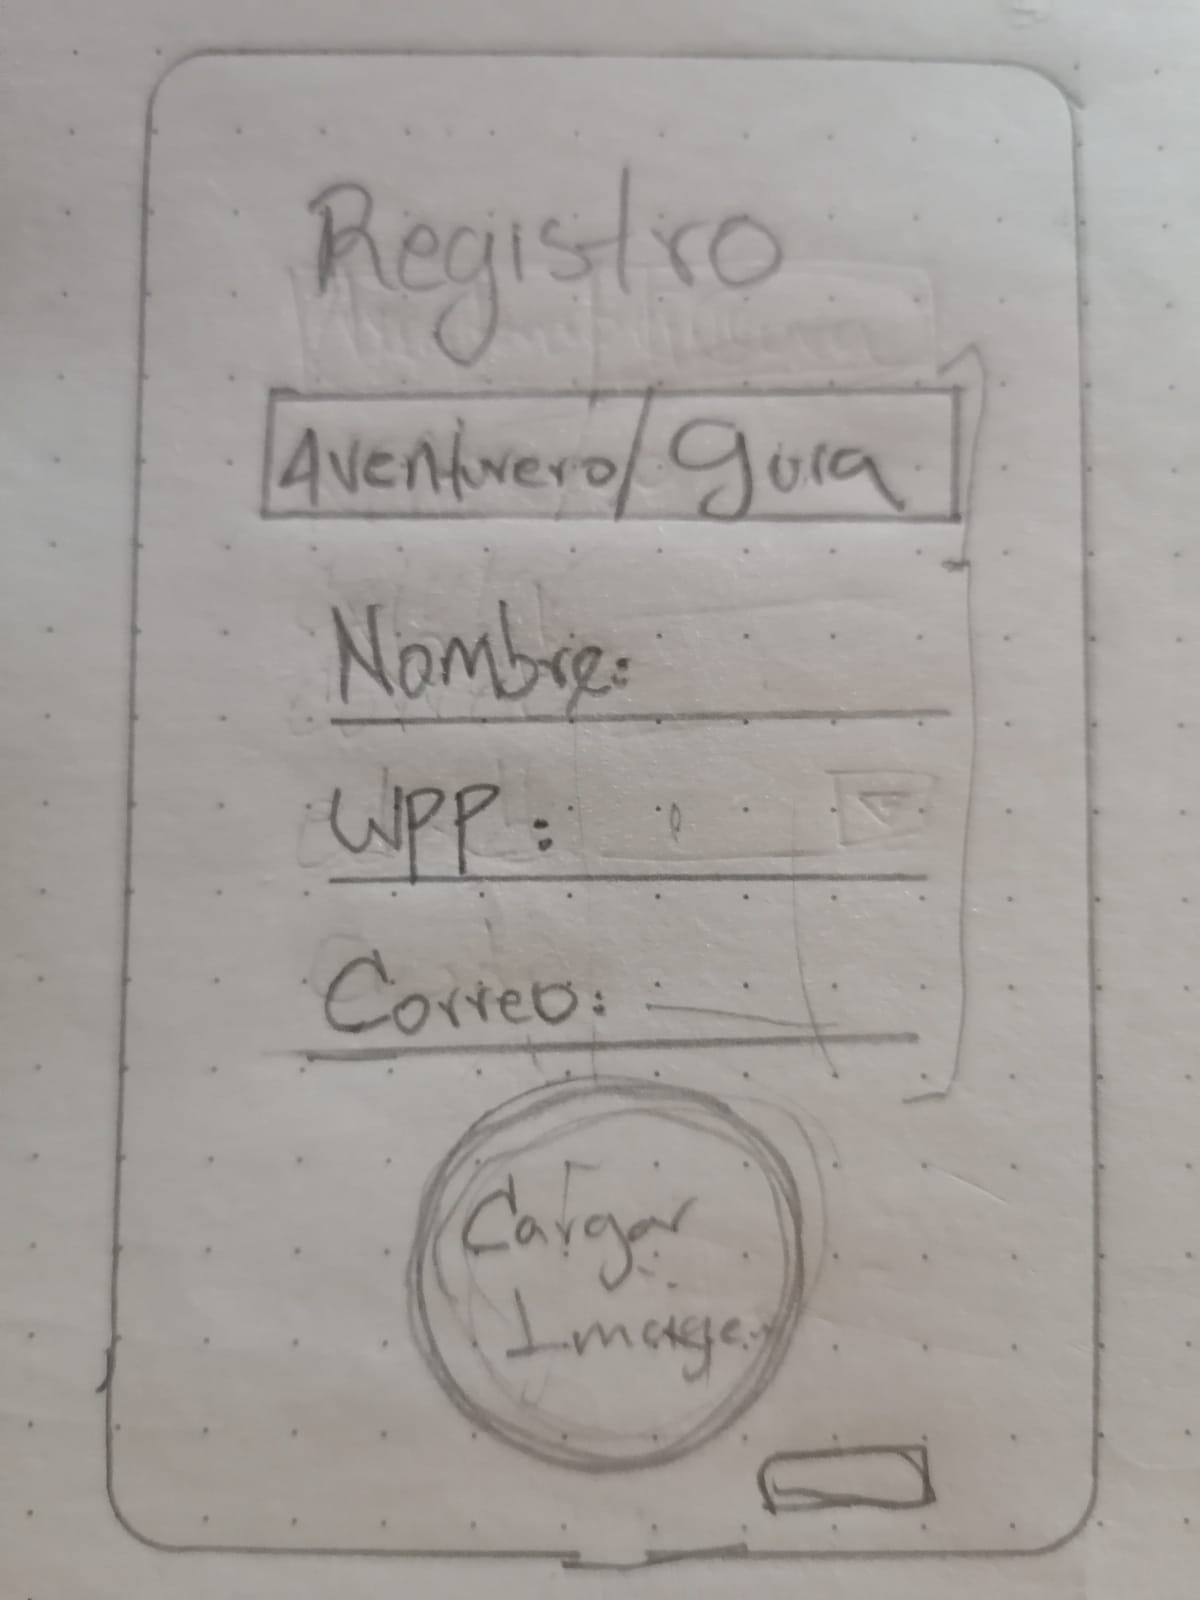 Registro
Aventurero/guia
Nombre:
WPP:
Correo:
Cargar
Image